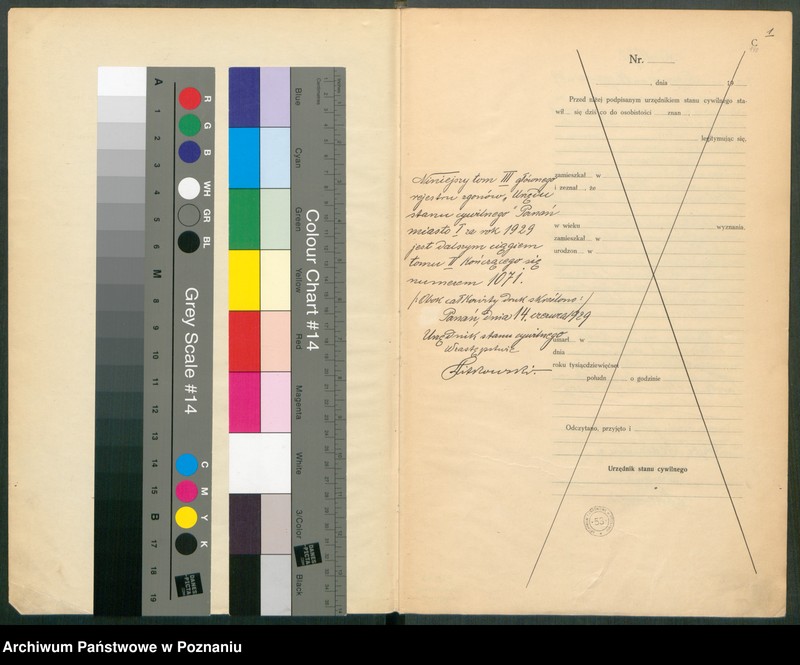 A 1 2 3 4 5 6 M 8 9 10 11 12 13 14 15 B 17 18 19
R G B WH GR BL
Grey Scale #14
C M Y K
DANES PICTA
Colour Chart #14
Blue
Cyan
Green
Yellow
Red
Magenta
White
3/Color
Black
DANES PICTA
1
C
Nr.
, dnia 19
Przed niżej podpisanym urzędnikiem stanu cywilnego sta-
wił się dziś co do osobistości znan
legitymując się,
zamieszkał w
i zeznał, że
w wieku wyznania.
zamieszkał w
urodzon w
umarł w
dnia
roku tysiącdziewięćset
południu o godzinie
Odczytano, przyjęto i
Urzędnik stanu cywilnego
Niniejszy tom III głównego
rejestru zgonów, Urzędu
stanu cywilnego" Poznań
miasto I za rok 1929
jest dalszym ciągiem
tomu II kończącego się
numerem 1071.
/:Obok całkowity druk skreślono:/
Poznań, dnia 14. czerwca 1929
Urzędnik stanu cywilnego
W zastępstwie
Archiwum Państwowe w Poznaniu